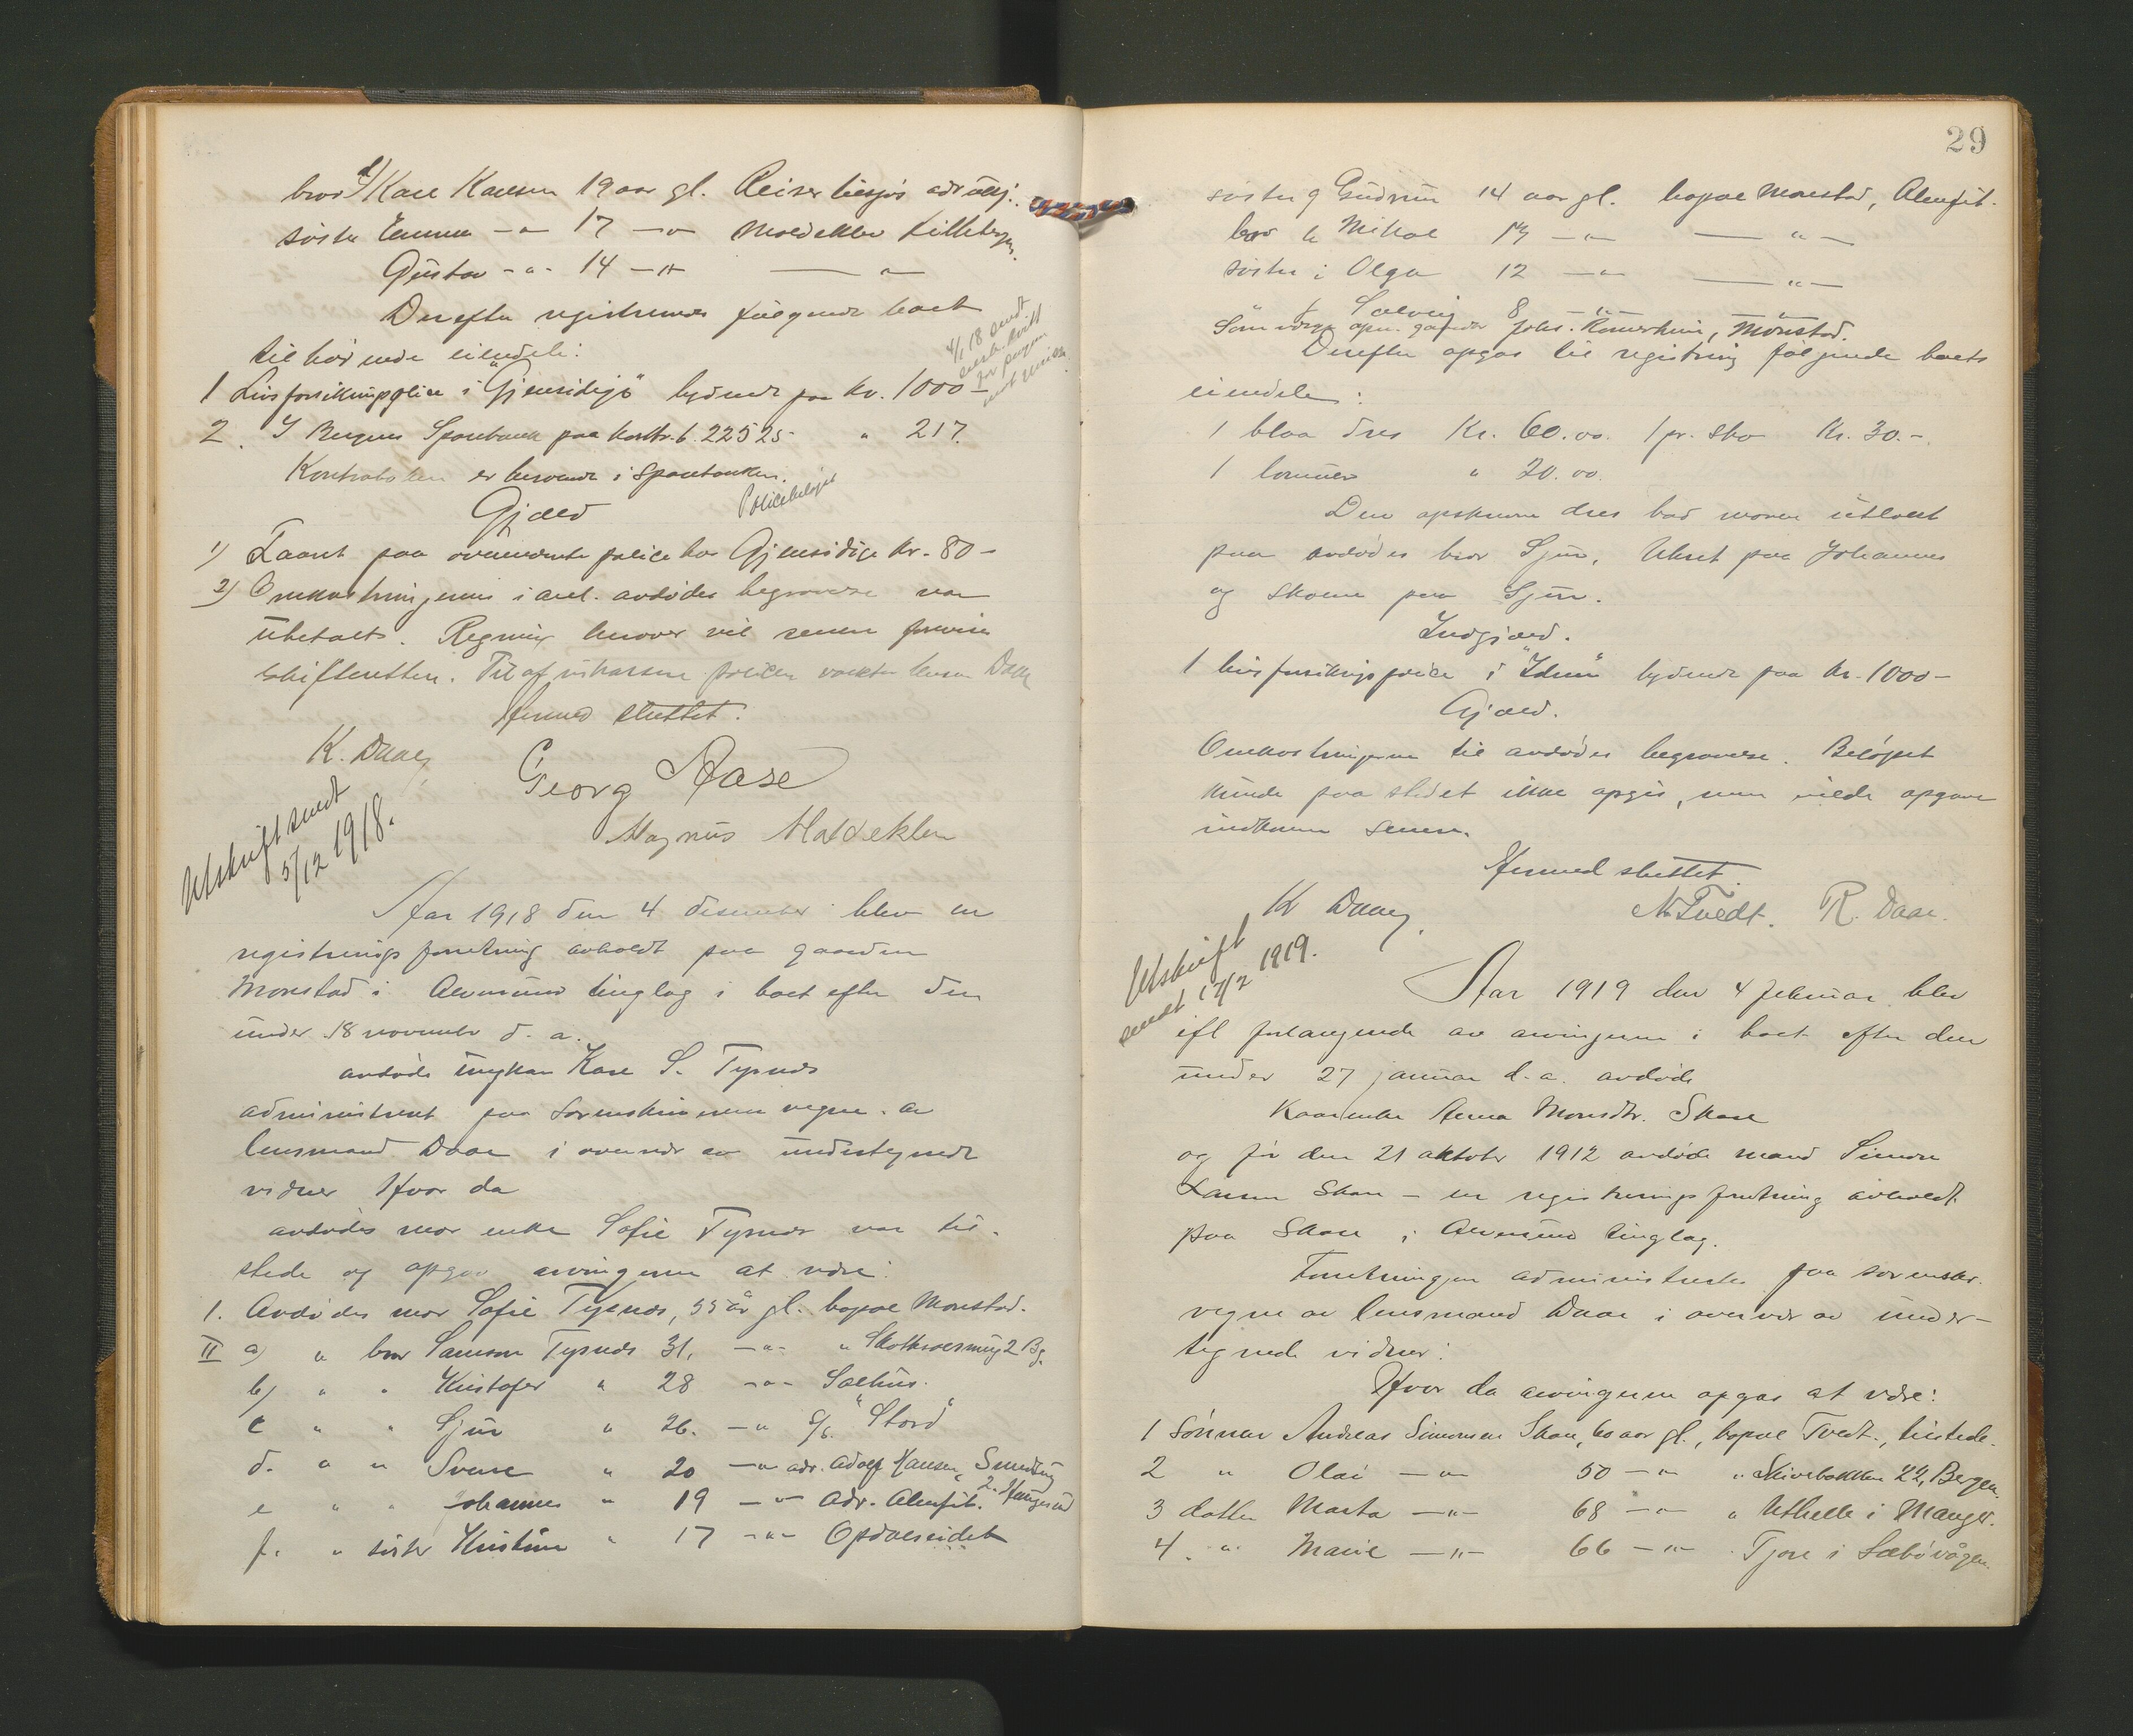 bror d) Karl Karlsen 19 aar gl. Reiser tilsjøs
søster Emma -"- 17 -"- Moldeklev
Gustav -"- 14 -"- — " —
Derefter registreredes følgende boet
tilhørende eiendele:
4/1 18 sendt
1 Livsforsikringspolice i "Gjensidige" lydende paa kr. 1000 -
2. I Bergens Sparebank paa 22525 " 217.
er beroende i Sparebanken.
Gjæld
Policebeløpet
1) Laant paa ovennævnte police hos Gjensidige kr. 80 -
2) Omkostningerne i anl. avdødes begravelse var
ubetalt. Regning herover vil senere
skifteretten. policen Daae
Hermed sluttet.
K. Daae
Georg Aase
Magnus Moldeklev
Utskrift sendt
5/12 1918.
Aar 1918 den 4 desember blev en
registreringsforretning avholdt paa gaarden
Monstad i Alversund tinglag i boet efter den
under 18 november d. a.
avdøde ungkar Karl S. Tysnes
administrert paa Sorenskriverens vegne av
lensmand Daae i overvær av undertegnede
vidner Hvor da
avdødes mor enke Sofie Tysnes var til-
stede og opgav arvingerne at være:
1. Avdødes mor Sofie Tysnes, 55 år gl. bopæl Monstad.
II a) " bror Samson Tysnes 31, -"- "
b) " " Kristofer " 28 -"- Salhus.
c " " Sjur " 26. -" D/S. "Stord"
d. " " Sverre " 20 -" adr. Adolf Hansen, Smedsung
2. Haugesund
e " " Johannes " 19 -"- Adr. Alenfit.
f. " søster Kristine " 17 -"- Opdalseidet
29
søster g Gudrun 14 aar gl. bopæl Monstad, Alenfit.
bror h Mikal -"- — " —
søster i Olga 12 -"- — " —
" j Solveig 8 -"- "
Som verge opn. gaardbr Johs. Monstad.
Derefter opgas til registrering følgende boets
eiendele:
1 blaa dres Kr. 60.00. 1 pr. sko Kr. 30.-
1 lommeur " 20.00.
Den opskrevne dres bad moren utlodt
paa avdødes bror Sjur, Uhret paa Johannes
og skoene paa Sjur.
Indgjæld.
1 livsforsikringspolice i "Idun" lydende paa kr. 1000 -
Gjæld.
Omkostningerne til avdødes begravelse. Beløpet
kunde paa stedet ikke opgis, men vilde opgave
indkomme senere.
Hermed sluttet.
K Daae,
N Tvedt. R. Daae.
Utskrift
sendt 17/2 1919.
Aar 1919 den 4 februar blev
ifl forlangende av arvingerne i boet efter den
under 27 januar d. a. avdøde
Kaarenke Anna Monsdtr. Skare
og før den 21 oktober 1912 avdøde mand Simon
Larsen Skare - en registreringsforretning avholdt
paa Skare i Alversund tinglag.
Forretningen administrertes paa sorenskr.
vegne av lensmand Daae i overvær av under-
tegnede vidner:
Hvor da arvingerne opgas at være:
1 Sønnen Andreas Simonsen Skare, 60 aar gl., bopæl Tvedt., tilstede.
2 " Olai -"- 50 -"- " Skivebakken 22, Bergen.
3 datter Marta -"- 68 -"- " Uthelle i Manger.
4. " Marie -"- 66 -"- " Tjore i Sæbøvågen.